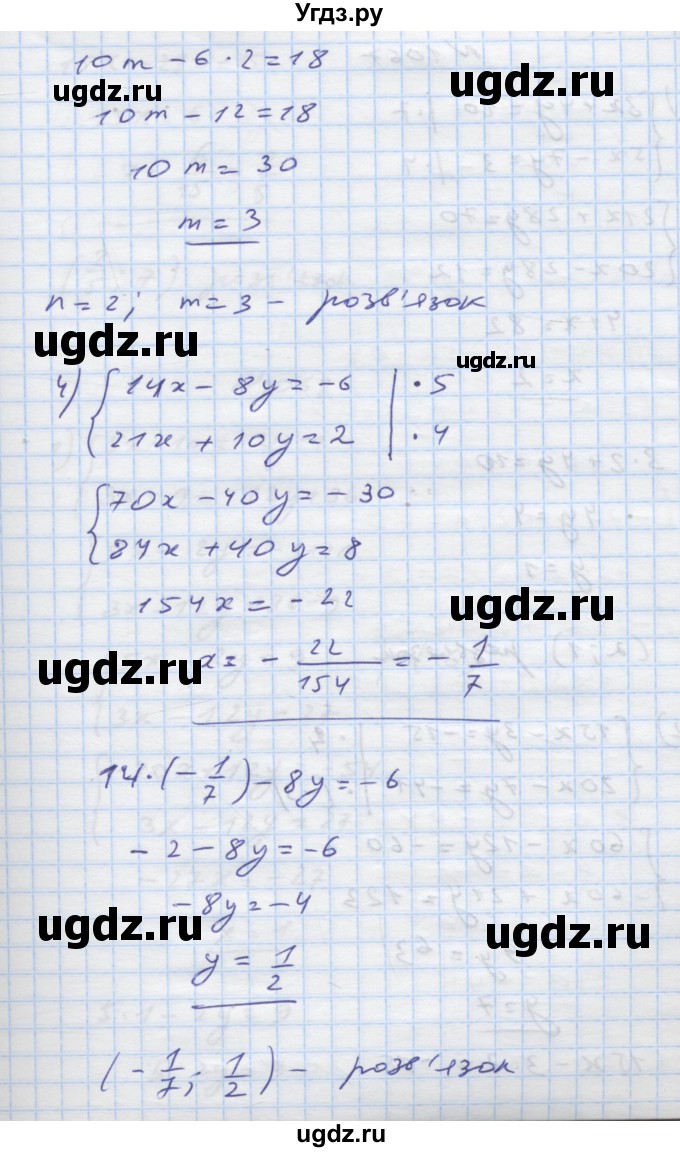 Угдз.ру
10m - 6 · 2 = 18
ugdz.ru
ugdz.ru
10m - 12 = 18
10m = 30
m = 3
n = 2; m = 3 - розв'язок
ugdz.ru
ugdz.ru
4) { 14x - 8y = -6 | · 5
21x + 10y = 2 | · 4
ugdz.ru
{ 70x - 40y = -30
84x + 40y = 8
154x = -22
ugdz.ru
ugdz.ru
x = - 22/154 = - 1/7
14 · (- 1/7) - 8y = -6
- 2 - 8y = -6
- 8y = -4
ugdz.ru
ugdz.ru
y = 1/2
(- 1/7; 1/2) - розв'язок
ugdz.ru